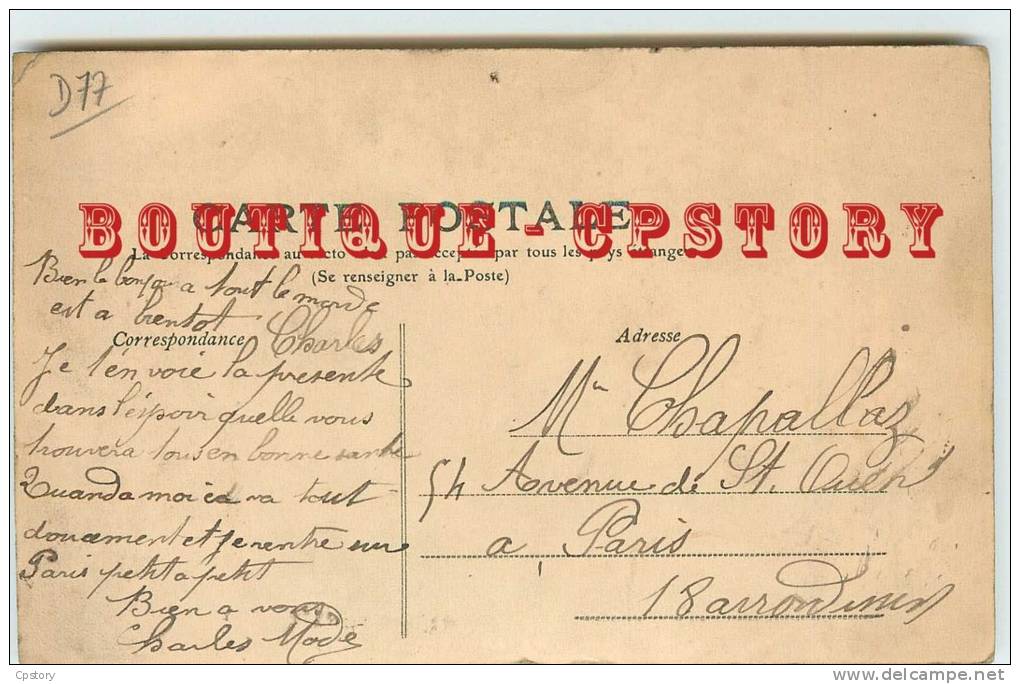 D77
CARTE POSTALE
BOUTIQUE - CPSTORY
La Correspondance au recto n'est pas acceptée par tous les pays étrangers
(Se renseigner à la Poste)
Bien le bonjour a tout le monde
est a bientot
Charles
Correspondance
Je t'en voie la presente
dans l'éspoir quelle vous
trouvera tous en bonne santé
Quand a moi ca va tout
doucement et je rentre sur
Paris petit a petit
Bien a vous
Charles Modé
Adresse
Mr Chapallaz
54 Avenue de St. Ouen
a Paris
18 arrondism
Cpstory
delcampe.net